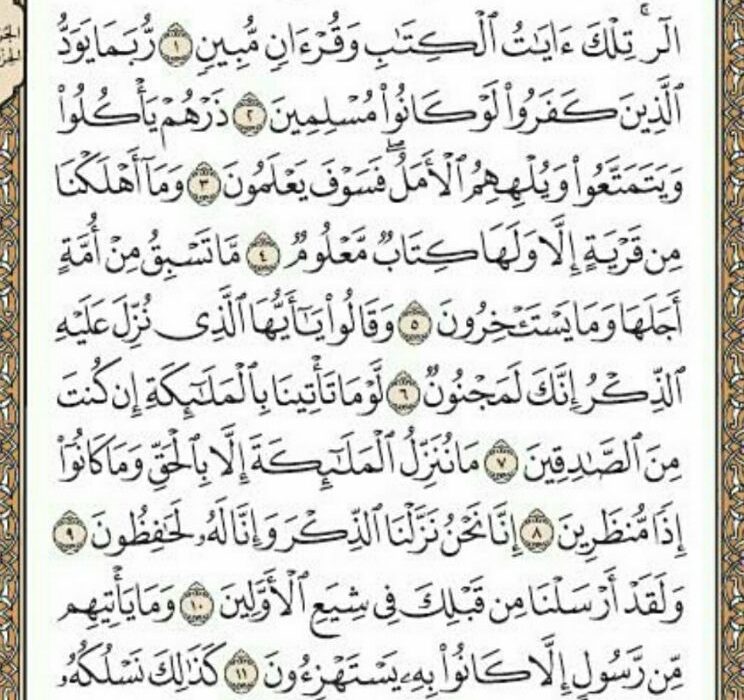 الٓرۚ تِلۡكَ ءَايَٰتُ ٱلۡكِتَٰبِ وَقُرۡءَانٖ مُّبِينٖ ١ رُّبَمَا يَوَدُّ
ٱلَّذِينَ كَفَرُواْ لَوۡ كَانُواْ مُسۡلِمِينَ ٢ ذَرۡهُمۡ يَأۡكُلُواْ
وَيَتَمَتَّعُواْ وَيُلۡهِهِمُ ٱلۡأَمَلُۖ فَسَوۡفَ يَعۡلَمُونَ ٣ وَمَآ أَهۡلَكۡنَا
مِن قَرۡيَةٍ إِلَّا وَلَهَا كِتَابٞ مَّعۡلُومٞ ٤ مَّا تَسۡبِقُ مِنۡ أُمَّةٍ
أَجَلَهَا وَمَا يَسۡتَـٔۡخِرُونَ ٥ وَقَالُواْ يَٰٓأَيُّهَا ٱلَّذِي نُزِّلَ عَلَيۡهِ
ٱلذِّكۡرُ إِنَّكَ لَمَجۡنُونٞ ٦ لَّوۡمَا تَأۡتِينَا بِٱلۡمَلَٰٓئِكَةِ إِن كُنتَ
مِنَ ٱلصَّٰدِقِينَ ٧ مَا نُنَزِّلُ ٱلۡمَلَٰٓئِكَةَ إِلَّا بِٱلۡحَقِّ وَمَا كَانُوٓاْ
إِذٗا مُّنظَرِينَ ٨ إِنَّا نَحۡنُ نَزَّلۡنَا ٱلذِّكۡرَ وَإِنَّا لَهُۥ لَحَٰفِظُونَ ٩
وَلَقَدۡ أَرۡسَلۡنَا مِن قَبۡلِكَ فِي شِيَعِ ٱلۡأَوَّلِينَ ١٠ وَمَا يَأۡتِيهِم
مِّن رَّسُولٍ إِلَّا كَانُواْ بِهِۦ يَسۡتَهۡزِءُونَ ١١ كَذَٰلِكَ نَسۡلُكُهُۥ